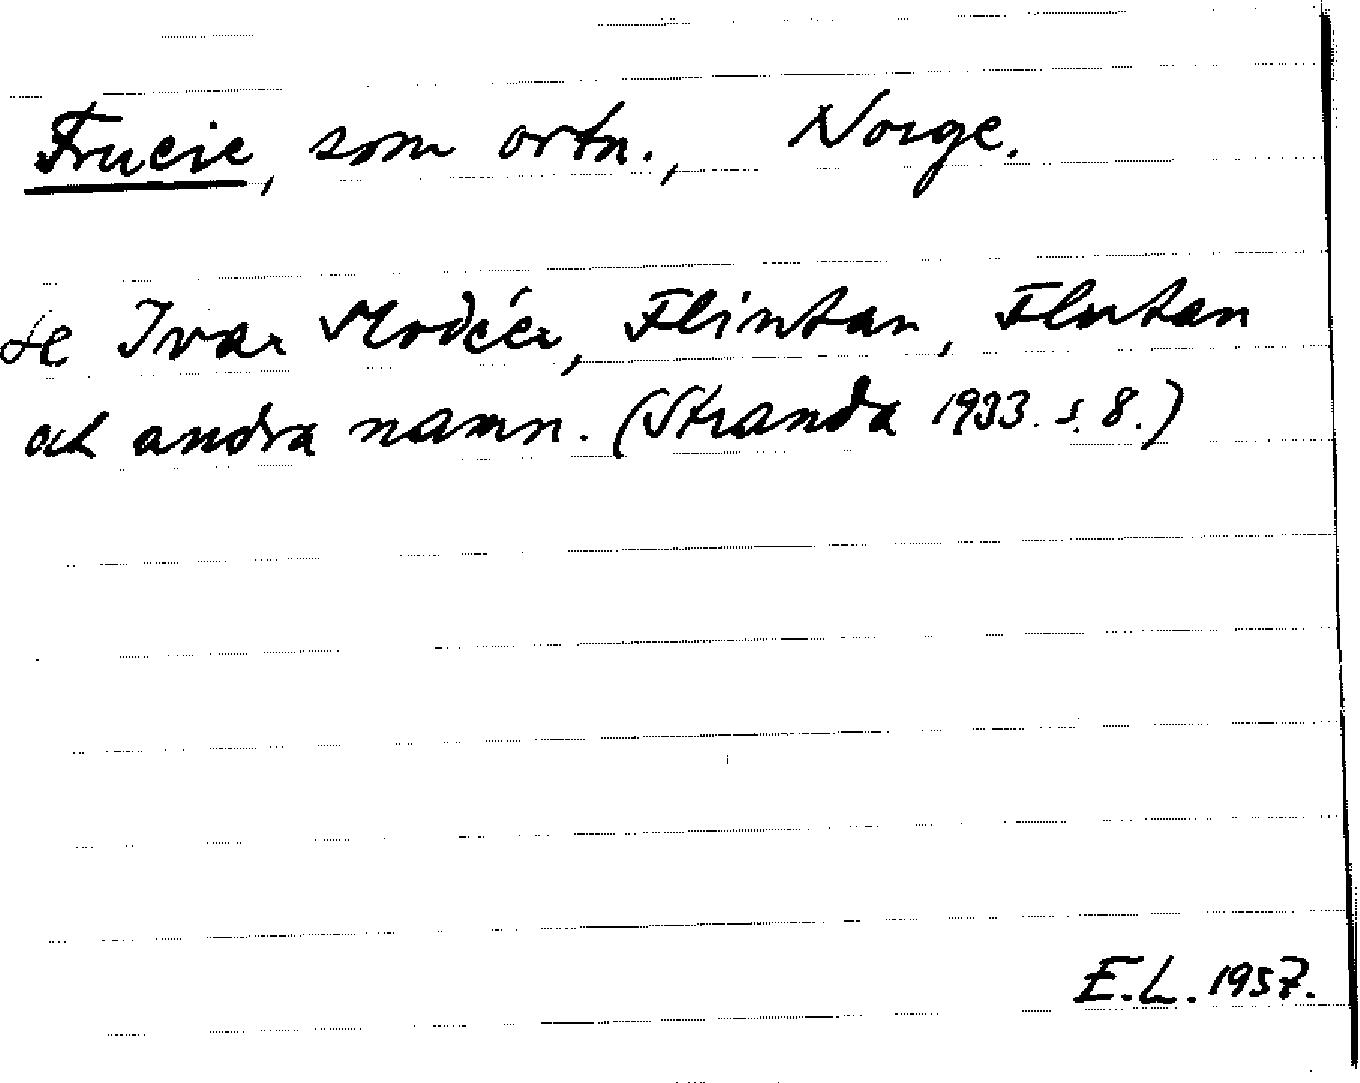 Frucie, som ortn., Norge.
se Ivar Modéer, Flintan, Flutan
och andra namn. (Stranda 1933. s. 8.)
E.L. 1957.